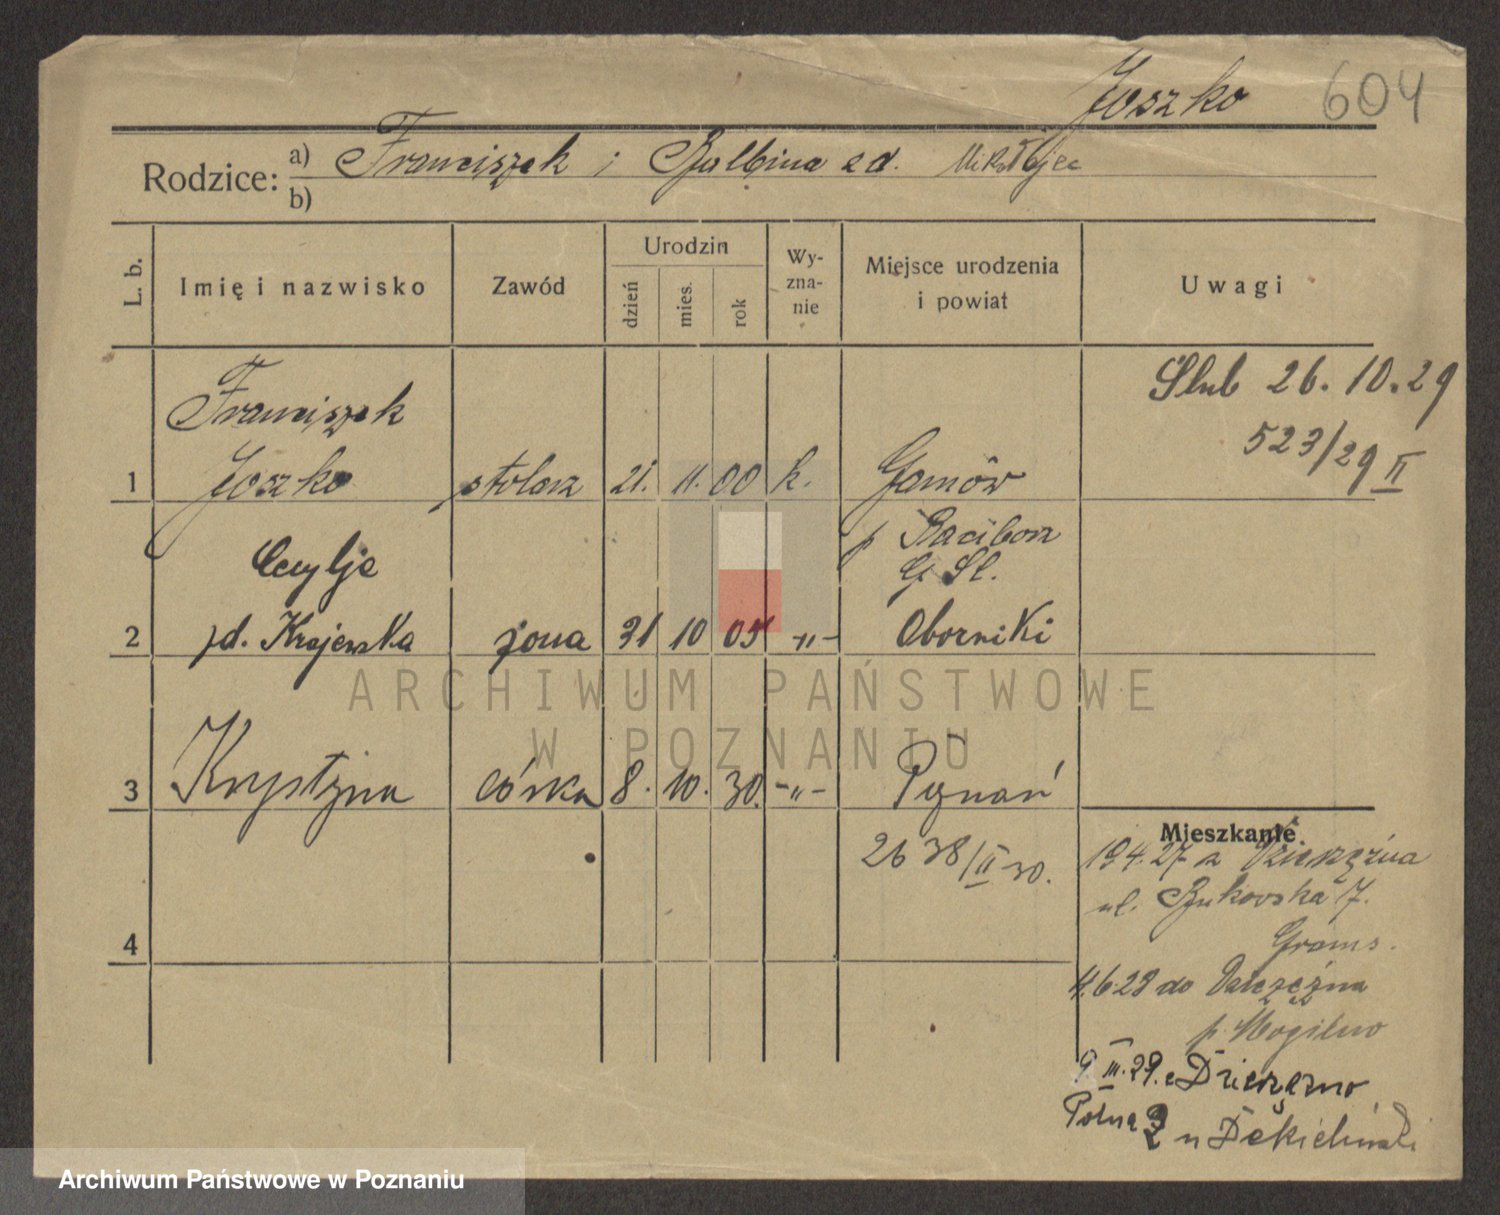 Joszko 604
Rodzice: a) Franciszek i Balbina zd. Mikołajec
b)
L. b. Imię i nazwisko Zawód Urodzin dzień mies. rok Wyznanie Miejsce urodzenia i powiat Uwagi
Ślub 26.10.29
523/29 II
Franciszek
1 Joszko stolarz 21. 11. 00 k. Gamów
p Raciborz
G Śl.
Cecylja
2 zd. Krajewska żona 31 10 05 -"- Oborniki
3 Krystyna córka 8. 10. 30. -"- Poznań
2638/II 30.
4
Mieszkanie
19.4.27 z
ul. Bukowska 7.
Grams.
4.6.28 do
p. Mogilno
9.III.29. z
Polna 3
u
ARCHIWUM PAŃSTWOWE
W POZNANIU
Archiwum Państwowe w Poznaniu